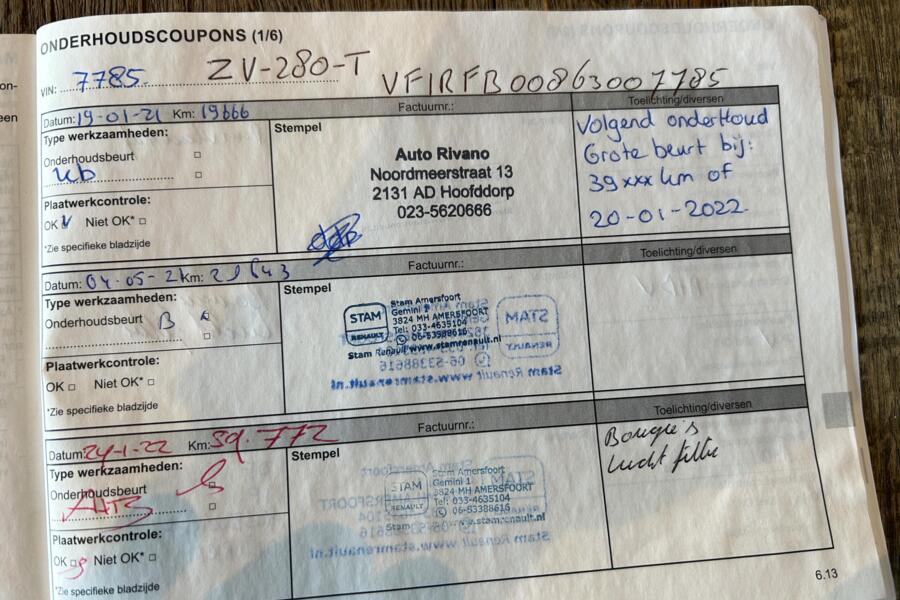 ONDERHOUDSCOUPONS (1/6)
VIN: 7785 ZV-280-T VF1RFB00863007785
Datum: 19-01-21 Km: 19666 Factuurnr.: Toelichting/diversen
Type werkzaamheden:
Onderhoudsbeurt
Plaatwerkcontrole:
OK V Niet OK*
*Zie specifieke bladzijde
Stempel
Auto Rivano
Noordmeerstraat 13
2131 AD Hoofddorp
023-5620666
Volgend onderhoud
Grote beurt bij:
39xxx km of
20-01-2022
Datum: 04-05-21 Km: Factuurnr.: Toelichting/diversen
Type werkzaamheden:
Onderhoudsbeurt B
Plaatwerkcontrole:
OK Niet OK*
*Zie specifieke bladzijde
Stempel
STAM
RENAULT
Stam Amersfoort
Gemini 1
3824 MH AMERSFOORT
Tel: 033-4635104
06-53388616
Stam Renault www.stamrenault.nl
Datum: 24-1-22 Km: 39.772 Factuurnr.: Toelichting/diversen
Type werkzaamheden:
Onderhoudsbeurt
Plaatwerkcontrole:
OK Niet OK*
*Zie specifieke bladzijde
Stempel
STAM
RENAULT
Stam Amersfoort
Gemini 1
3824 MH AMERSFOORT
Tel: 033-4635104
06-53388616
www.stamrenault.nl
Bougie's
lucht filter
6.13